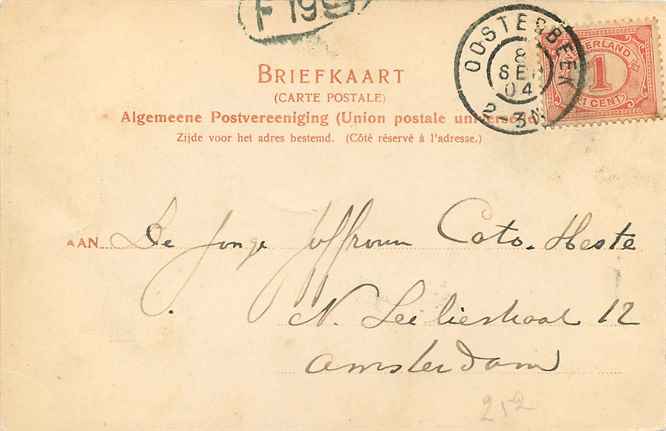 F 199
OOSTERBEEK
8
SEP
04
2-3N
NEDERLAND
1
1 CENT
BRIEFKAART
(CARTE POSTALE)
Algemeene Postvereeniging (Union postale universelle)
Zijde voor het adres bestemd. (Côté réservé à l'adresse.)
AAN De Jonge Juffrouw Cato. Heste
N. Leeliestraat 12
Amsterdam
252